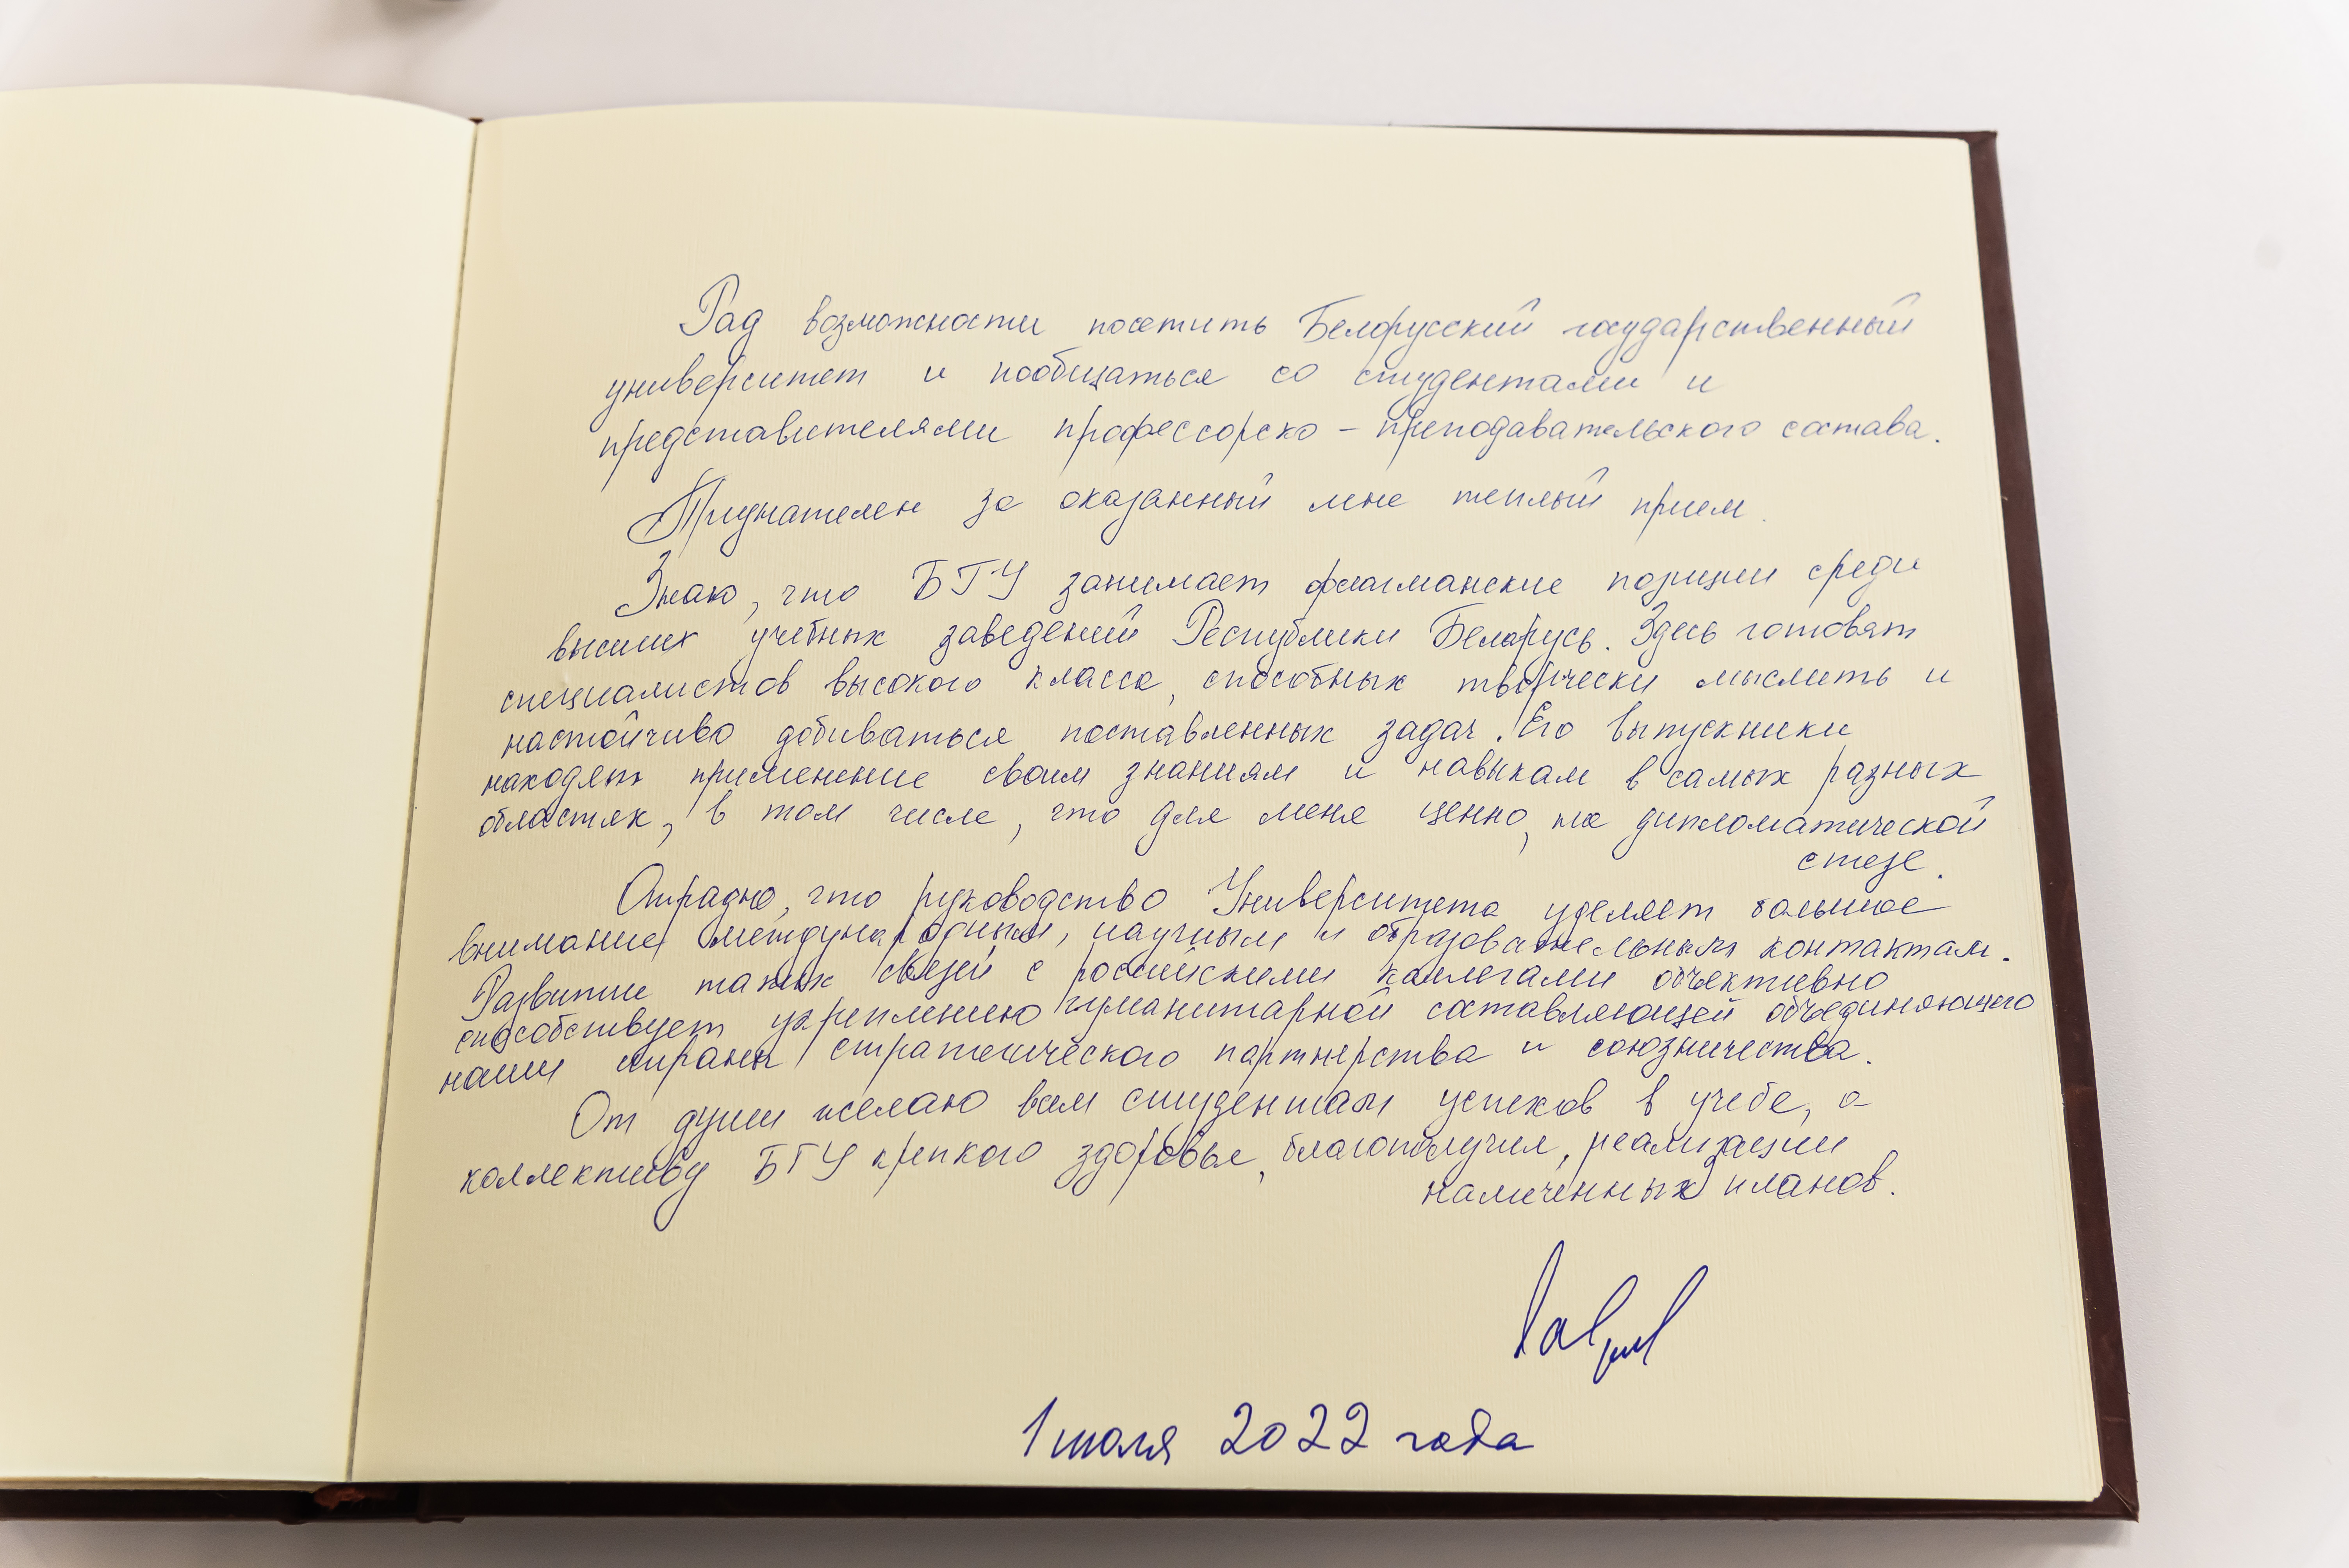 Рад возможности посетить Белорусский государственный
университет и пообщаться со студентами и
представителями профессорско - преподавательского состава.
Признателен за оказанный мне теплый прием.
Знаю, что БГУ занимает флагманские позиции среди
высших учебных заведений Республики Беларусь. Здесь готовят
специалистов высокого класса, способных творчески мыслить и
настойчиво добиваться поставленных задач. Его выпускники
находят применение своим знаниям и навыкам в самых разных
областях, в том числе, что для меня ценно, на дипломатической
стезе.
Отрадно, что руководство Университета уделяет большое
внимание международным, научным и образовательным контактам.
Развитие таких связей с российскими коллегами объективно
способствует укреплению гуманитарной составляющей объединяющего
наши страны стратегического партнерства и союзничества.
От души желаю всем студентам успехов в учебе, а
коллективу БГУ крепкого здоровья, благополучия, реализации
намеченных планов.
1 июля 2022 года